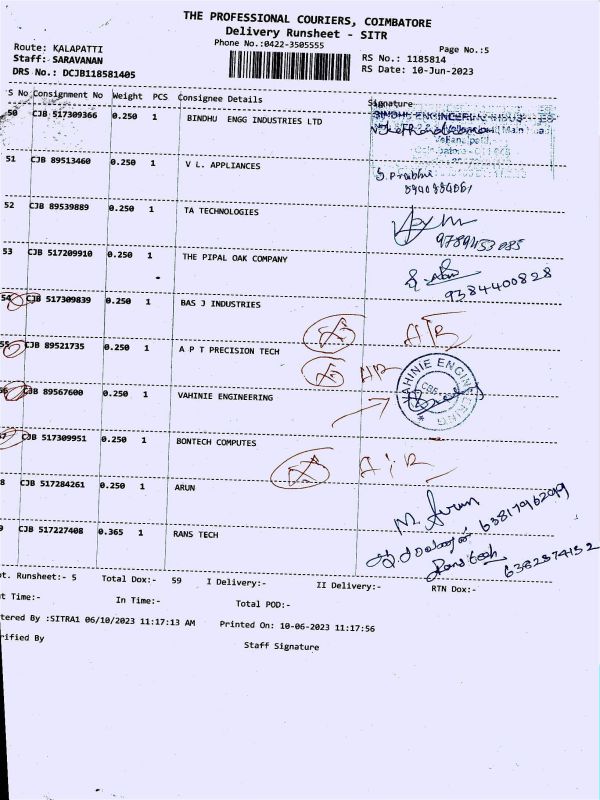 THE PROFESSIONAL COURIERS, COIMBATORE
Delivery Runsheet - SITR
Phone No.:0422-3505555
Page No.:5
Route: KALAPATTI
Staff: SARAVANAN
DRS No.: DCJB118581405
RS No.: 1185814
RS Date: 10-Jun-2023
S No Consignment No Weight PCS Consignee Details Signature
50 CJB 517309366 0.250 1 BINDHU ENGG INDUSTRIES LTD
51 CJB 89513460 0.250 1 V L. APPLIANCES
S. Prabhu
52 CJB 89539889 0.250 1 TA TECHNOLOGIES
9789453885
53 CJB 517209910 0.250 1 THE PIPAL OAK COMPANY
9384400828
54 CJB 517309839 0.250 1 BAS J INDUSTRIES
55 CJB 89521735 0.250 1 A P T PRECISION TECH
56 CJB 89567600 0.250 1 VAHINIE ENGINEERING
VAHINIE ENGINEERING
CBE
57 CJB 517309951 0.250 1 BONTECH COMPUTES
8 CJB 517284261 0.250 1 ARUN
M. Arun
9 CJB 517227408 0.365 1 RANS TECH
Rans tech
6382374152
ot. Runsheet:- 5 Total Dox:- 59 I Delivery:- II Delivery:- RTN Dox:-
t Time:- In Time:- Total POD:-
tered By :SITRA1 06/10/2023 11:17:13 AM Printed On: 10-06-2023 11:17:56
rified By Staff Signature